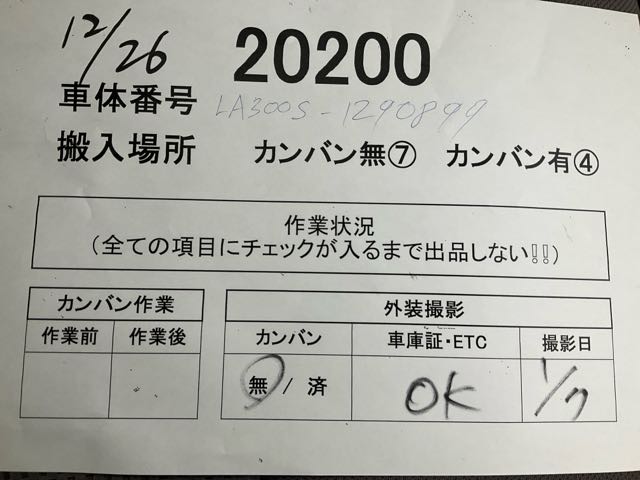 12/26
20200
車体番号 LA300S-1290899
搬入場所 カンバン無⑦ カンバン有④
作業状況
(全ての項目にチェックが入るまで出品しない!!)
カンバン作業
作業前 作業後
外装撮影
カンバン 車庫証・ETC 撮影日
無 / 済 OK 1/7